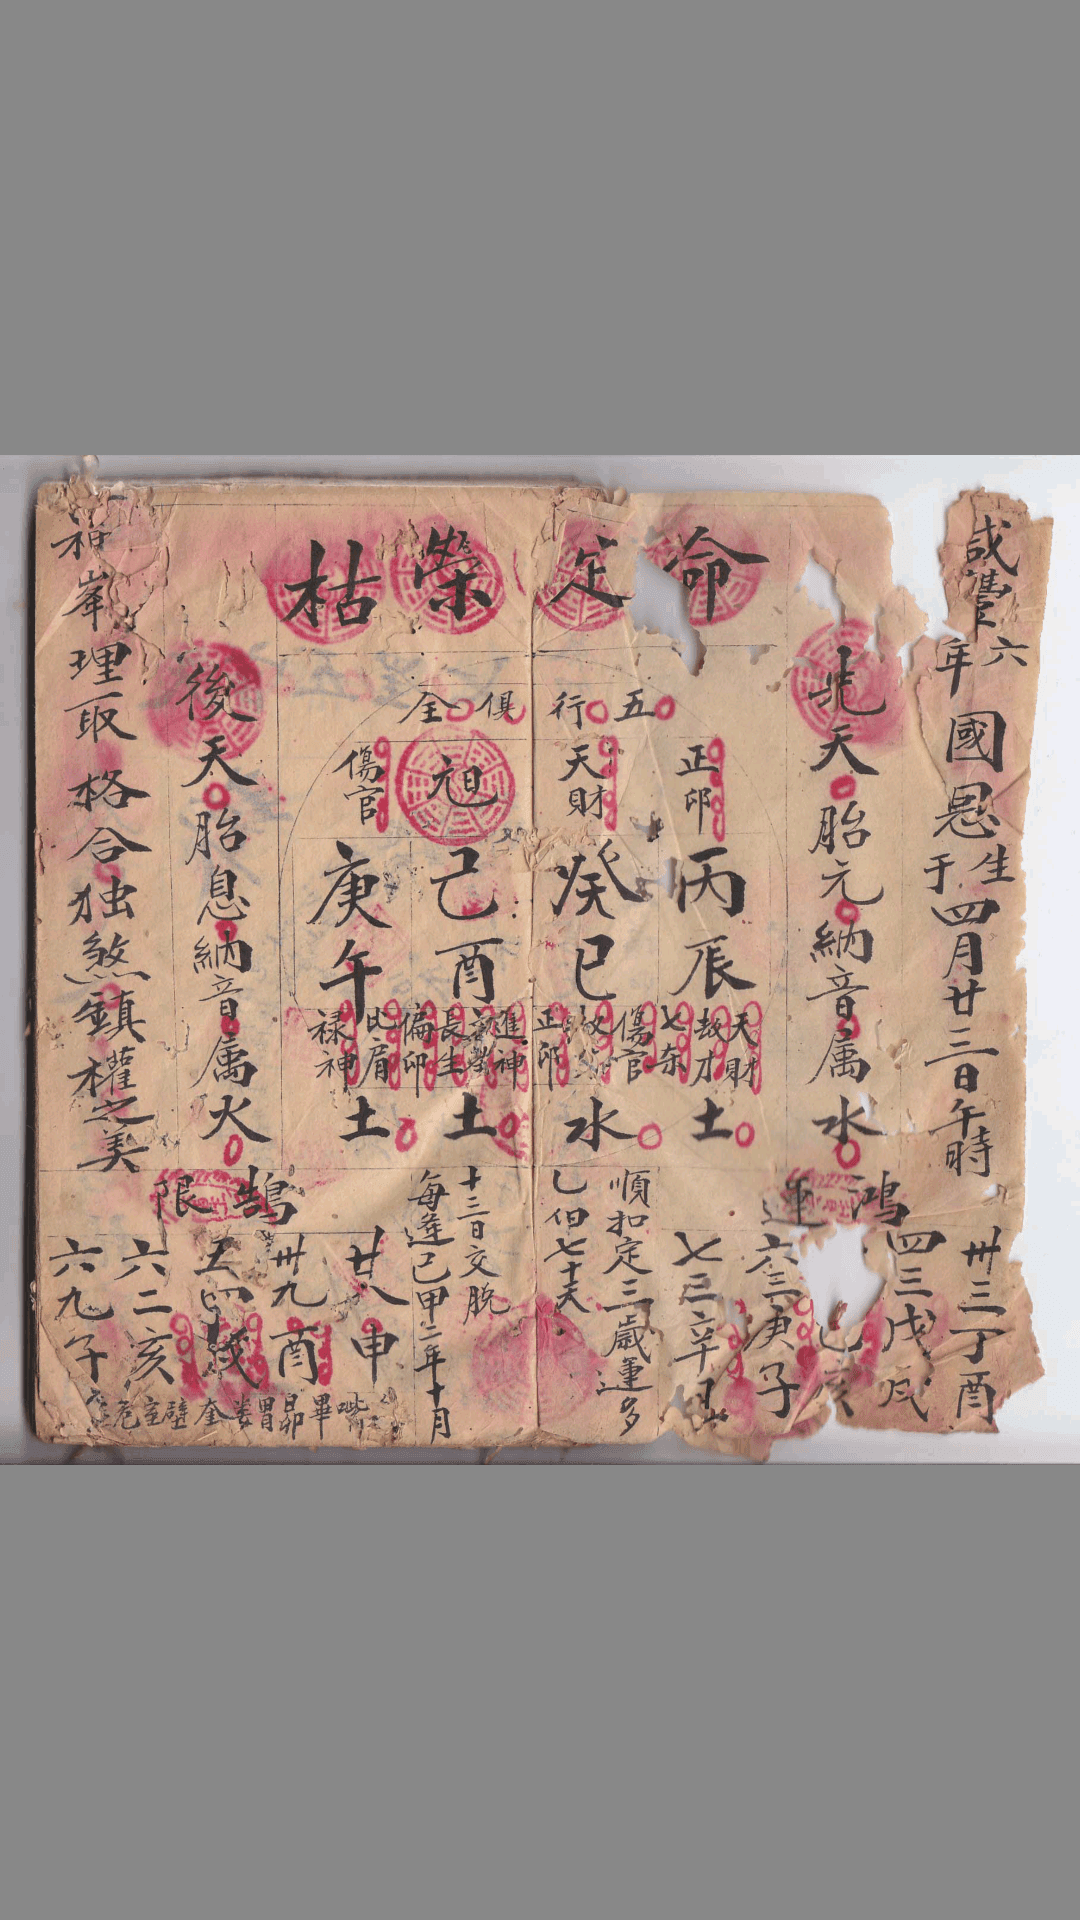 咸豐六年國恩生于四月廿三日午時
命定榮枯
先天胎元納音属水
五行俱全
正印
天財
元旦
傷官
丙辰
癸巳
己酉
庚午
天財
劫才
七杀
傷官
正印
進神
長生
偏印
比肩
禄神
土
水
土
土
後天胎息納音属火
峯理取格合独煞鎮權之美
鴻運
卅三丁酉
四三戊戌
己亥
六三庚子
七三辛丑
順扣定三歲運多
七十天
十三日交脱
每逢己甲二年十月
鵠限
廿八申
卅九酉
五四戌
六二亥
六九子
畢昴胃婁奎壁室危